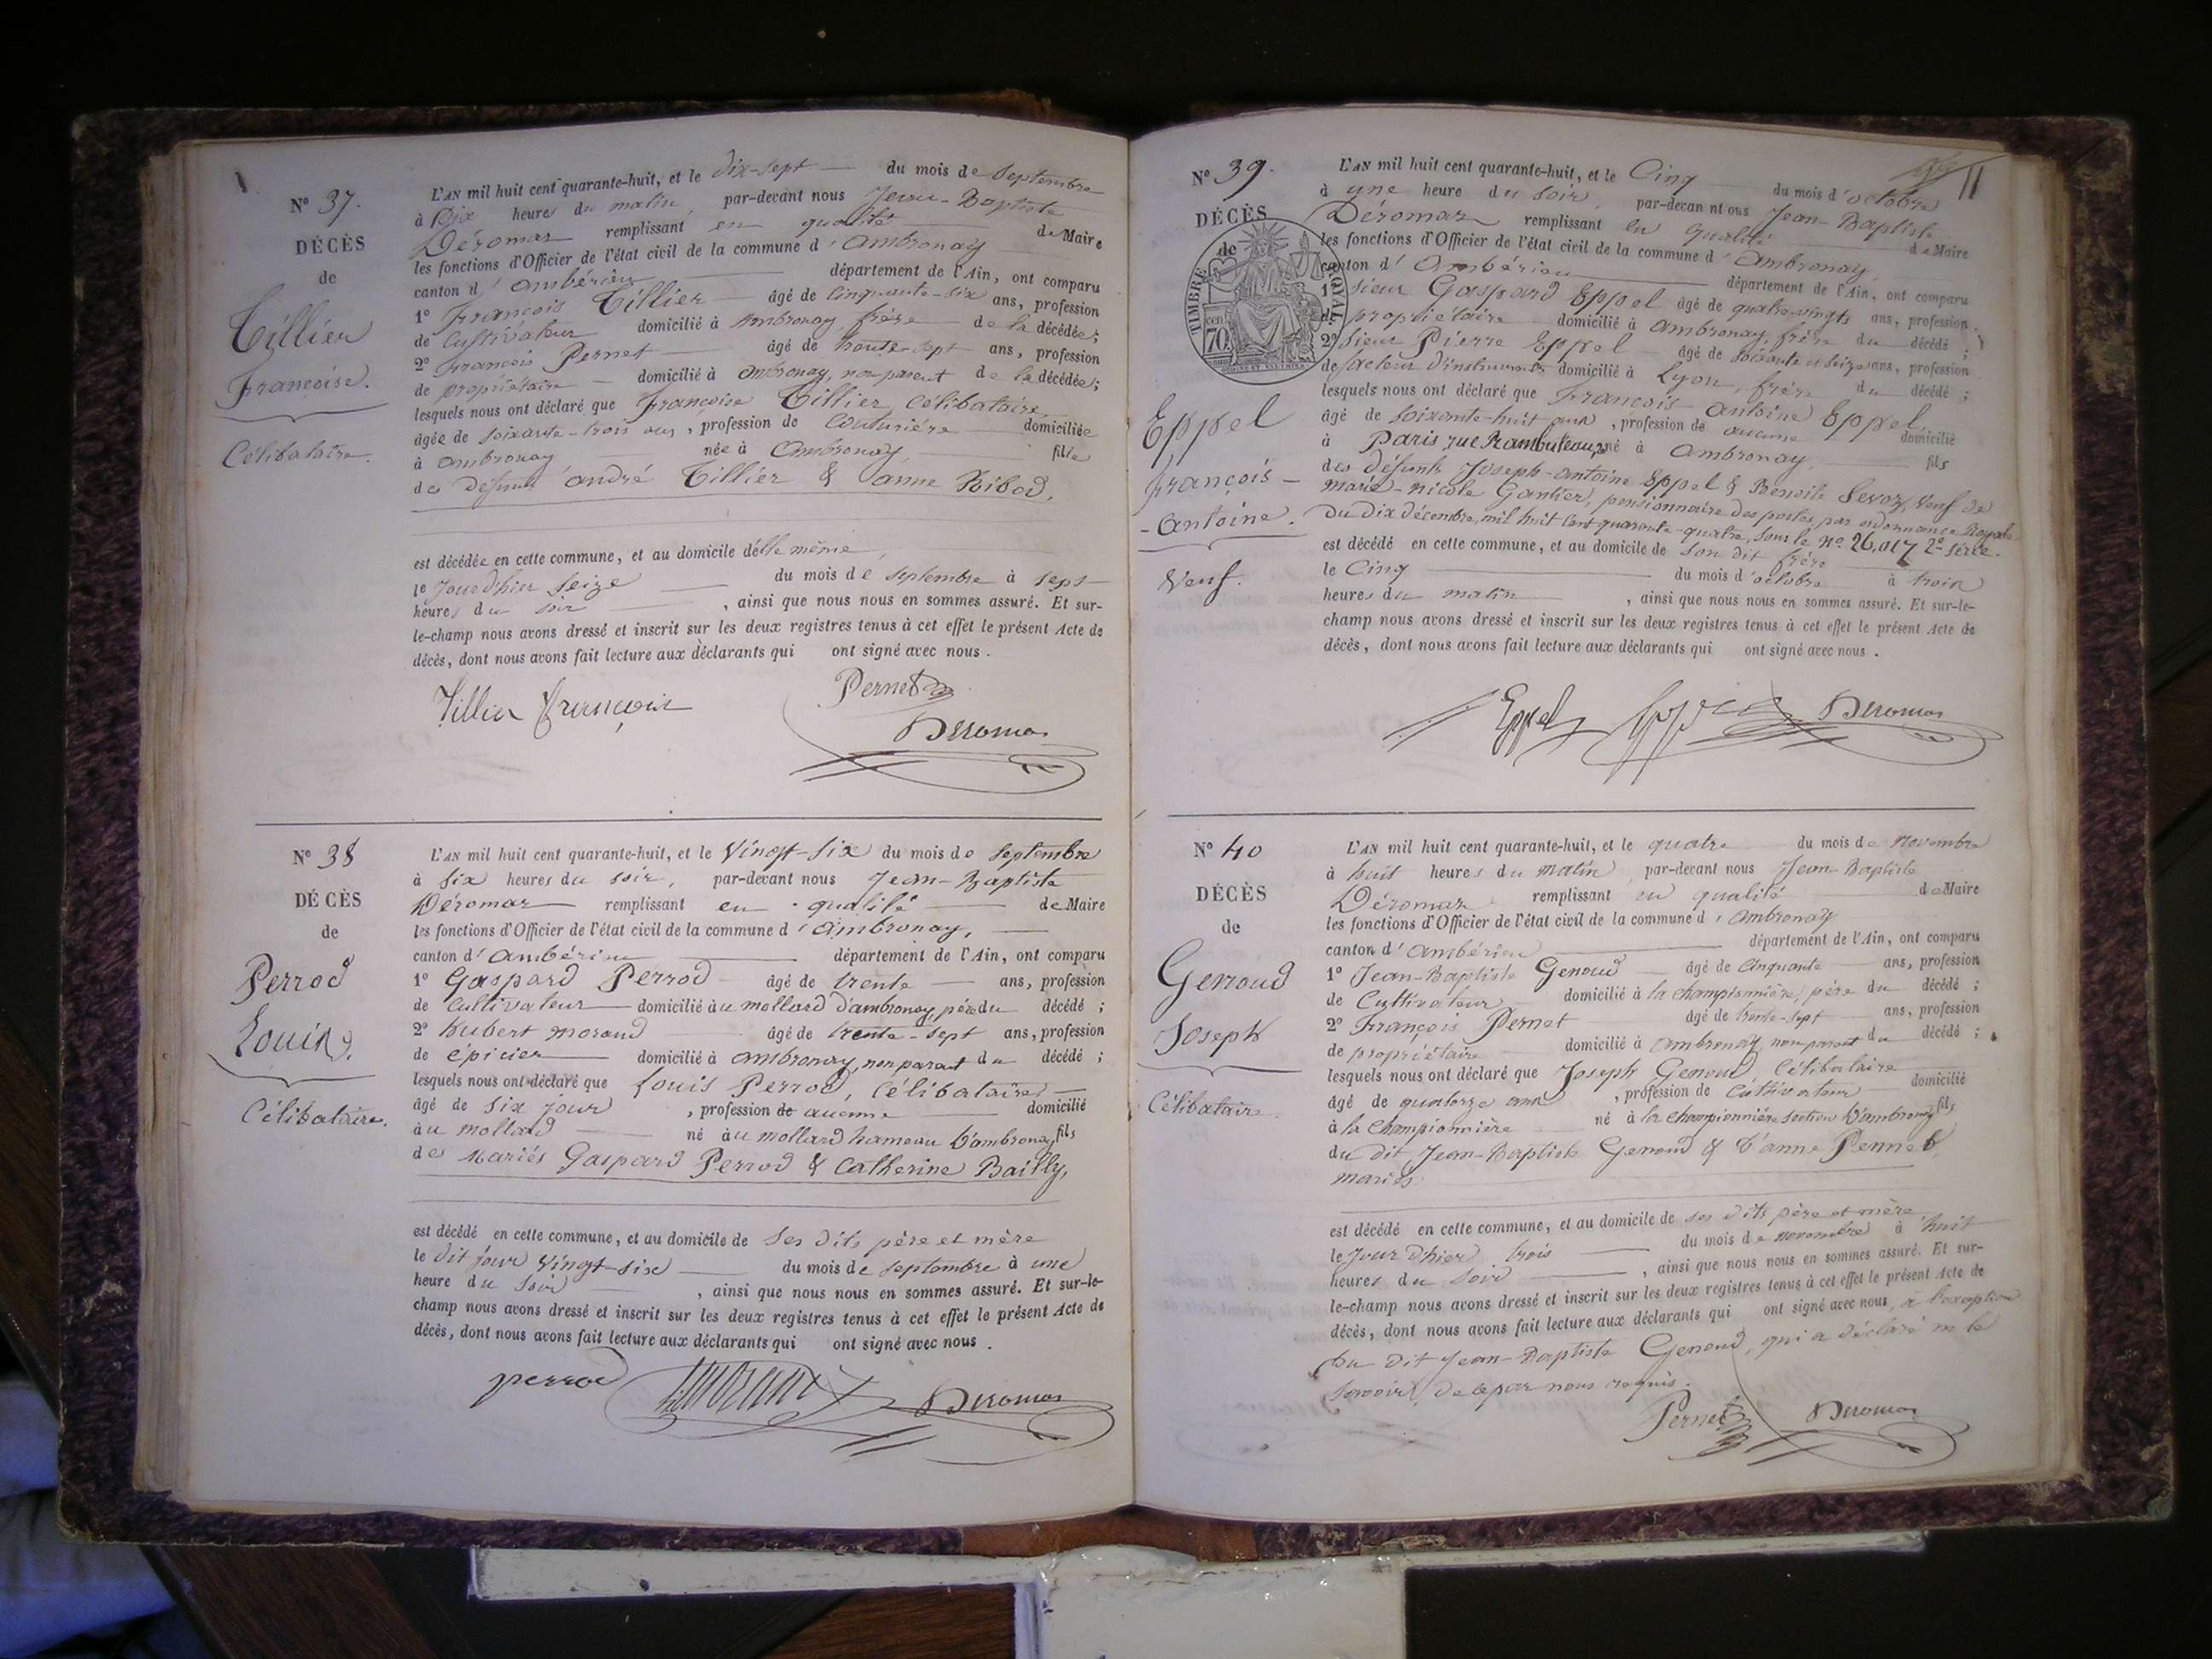 N° 37.
DÉCÈS
de
Tillier
Françoise.
Célibataire.
L'AN mil huit cent quarante-huit, et le dix-sept du mois de septembre
à Dix heures du matin, par-devant nous Jean-Baptiste
Déromas remplissant en qualité de Maire
les fonctions d'Officier de l'état civil de la commune d'ambronay
canton d'ambérieu département de l'Ain, ont comparu
1° François Tillier âgé de cinquante-six ans, profession
de cultivateur domicilié à ambronay frère de la décédée;
2° François Pernet âgé de trente-sept ans, profession
de propriétaire domicilié à ambronay, non parent de la décédée;
lesquels nous ont déclaré que Françoise Tillier célibataire
âgée de soixante-trois ans, profession de couturière domiciliée
à ambronay née à Ambronay, fille
des défunts andré Tillier & anne Ribod,
est décédée en cette commune, et au domicile d'elle même,
le jour d'hier seize du mois de septembre à sept
heures du soir, ainsi que nous nous en sommes assuré. Et sur-
le-champ nous avons dressé et inscrit sur les deux registres tenus à cet effet le présent Acte de
décès, dont nous avons fait lecture aux déclarants qui ont signé avec nous.
Tillier François Pernet
Deromas
N° 38
DÉCÈS
de
Perrod
Louis.
Célibataire.
L'AN mil huit cent quarante-huit, et le Vingt-six du mois de septembre
à six heures du soir, par-devant nous Jean-Baptiste
Déromas remplissant en qualité de Maire
les fonctions d'Officier de l'état civil de la commune d'ambronay,
canton d'ambérieu département de l'Ain, ont comparu
1° Gaspard Perrod âgé de trente ans, profession
de cultivateur domicilié au mollard d'ambronay, père du décédé;
2° hubert morand âgé de trente-sept ans, profession
de épicier domicilié à ambronay, non parent du décédé;
lesquels nous ont déclaré que Louis Perrod, célibataire,
âgé de six jours, profession de aucune domicilié
au mollard né au mollard hameau d'ambronay, fils
des mariés Gaspard Perrod & catherine Bailly,
est décédé en cette commune, et au domicile de ses dits père et mère
le dit jour vingt-six du mois de septembre à une
heure du soir, ainsi que nous nous en sommes assuré. Et sur-le-
champ nous avons dressé et inscrit sur les deux registres tenus à cet effet le présent Acte de
décès, dont nous avons fait lecture aux déclarants qui ont signé avec nous.
perrod h. morand Deromas
11
N° 39.
DÉCÈS
de
TIMBRE ROYAL
70
Eppel
françois-
-antoine.
Veuf.
L'AN mil huit cent quarante-huit, et le Cinq du mois d'octobre
à une heure du soir, par-devant nous Jean-Baptiste
Déromas remplissant en qualité de Maire
les fonctions d'Officier de l'état civil de la commune d'Ambronay,
canton d'ambérieu département de l'Ain, ont comparu
1° sieur Gaspard Eppel âgé de quatre-vingts ans, profession
de propriétaire domicilié à ambronay frère du décédé;
2° sieur Pierre Eppel âgé de soixante et seize ans, profession
de facteur d'instruments domicilié à Lyon, frère du décédé;
lesquels nous ont déclaré que François-antoine Eppel
âgé de soixante-huit ans, profession de aucune domicilié
à Paris, rue Rambuteau, né à ambronay, fils
des défunts Joseph-antoine Eppel & Benoite Sevoz, Veuf de
marie-nicole Gantier, pensionnaire des postes, par ordonnance Royale
du dix décembre, mil huit cent quarante-quatre, sous le n° 26,017 2e série.
est décédé en cette commune, et au domicile de son dit frère
le Cinq du mois d'octobre à trois
heures du matin, ainsi que nous nous en sommes assuré. Et sur-le-
champ nous avons dressé et inscrit sur les deux registres tenus à cet effet le présent Acte de
décès, dont nous avons fait lecture aux déclarants qui ont signé avec nous.
Eppel Eppel Deromas
N° 40
DÉCÈS
de
Genoud
Joseph
Célibataire.
L'AN mil huit cent quarante-huit, et le quatre du mois de novembre
à huit heures du matin par-devant nous Jean-Baptiste
Déromas remplissant en qualité de Maire
les fonctions d'Officier de l'état civil de la commune d'ambronay
canton d'ambérieu département de l'Ain, ont comparu
1° Jean-Baptiste Genoud âgé de cinquante ans, profession
de Cultivateur domicilié à la championnière, père du décédé;
2° François Pernet âgé de trente-sept ans, profession
de propriétaire domicilié à ambronay, non parent du décédé;
lesquels nous ont déclaré que Joseph Genoud célibataire
âgé de quatorze ans, profession de cultivateur domicilié
à la Championnière né à la championnière section d'ambronay fils
du dit Jean-Baptiste Genoud & d'anne Pennet,
mariés
est décédé en cette commune, et au domicile de ses dits père et mère
le jour d'hier trois du mois de novembre à huit
heures du soir, ainsi que nous nous en sommes assuré. Et sur-
le-champ nous avons dressé et inscrit sur les deux registres tenus à cet effet le présent Acte de
décès, dont nous avons fait lecture aux déclarants qui ont signé avec nous, à l'exception
du dit Jean-Baptiste Genoud, qui a déclaré ne le
savoir, de ce par nous requis.
Pernet Deromas